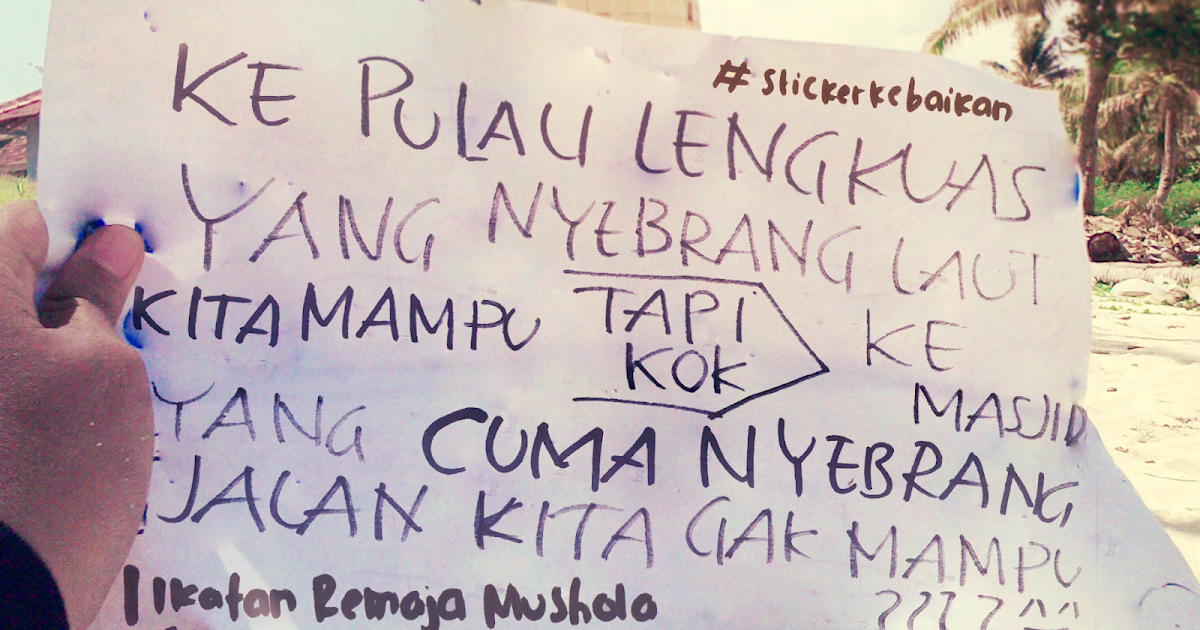 #stickerkebaikan
KE PULAU LENGKUAS
YANG NYEBRANG LAUT
KITA MAMPU TAPI KOK KE MASJID
YANG CUMA NYEBRANG
JALAN KITA GAK MAMPU
???? ^^
| Ikatan Remaja Mushola